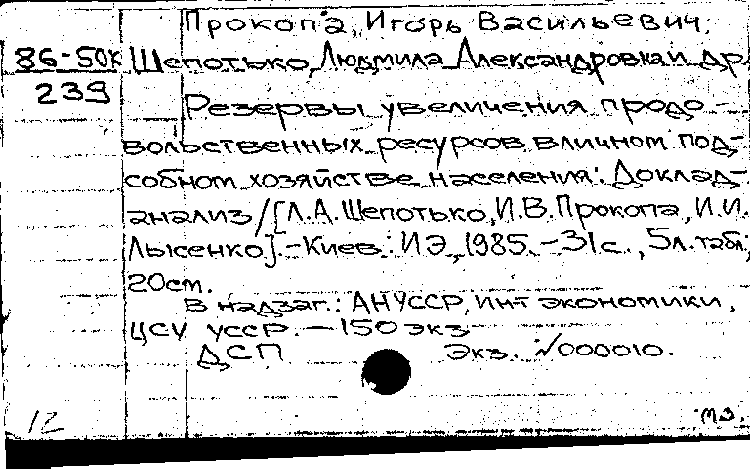 Прокопа, Игорь Васильевич,
86-50К Шепотько, Людмила Александровна и др.
239
Резервы увеличения продо-
вольственных ресурсов в личном под-
собном хозяйстве населения: Доклад-
анализ / [Л.А. Шепотько, И.В. Прокопа, И.И.
Лысенко]. - Киев: ИЭ, 1985. - 31 с., 5 л. табл;
20 см.
В надзаг.: АН УССР, Ин-т экономики,
ЦСУ УССР. - 150 экз
ДСП Экз. №000010.
12 мз.